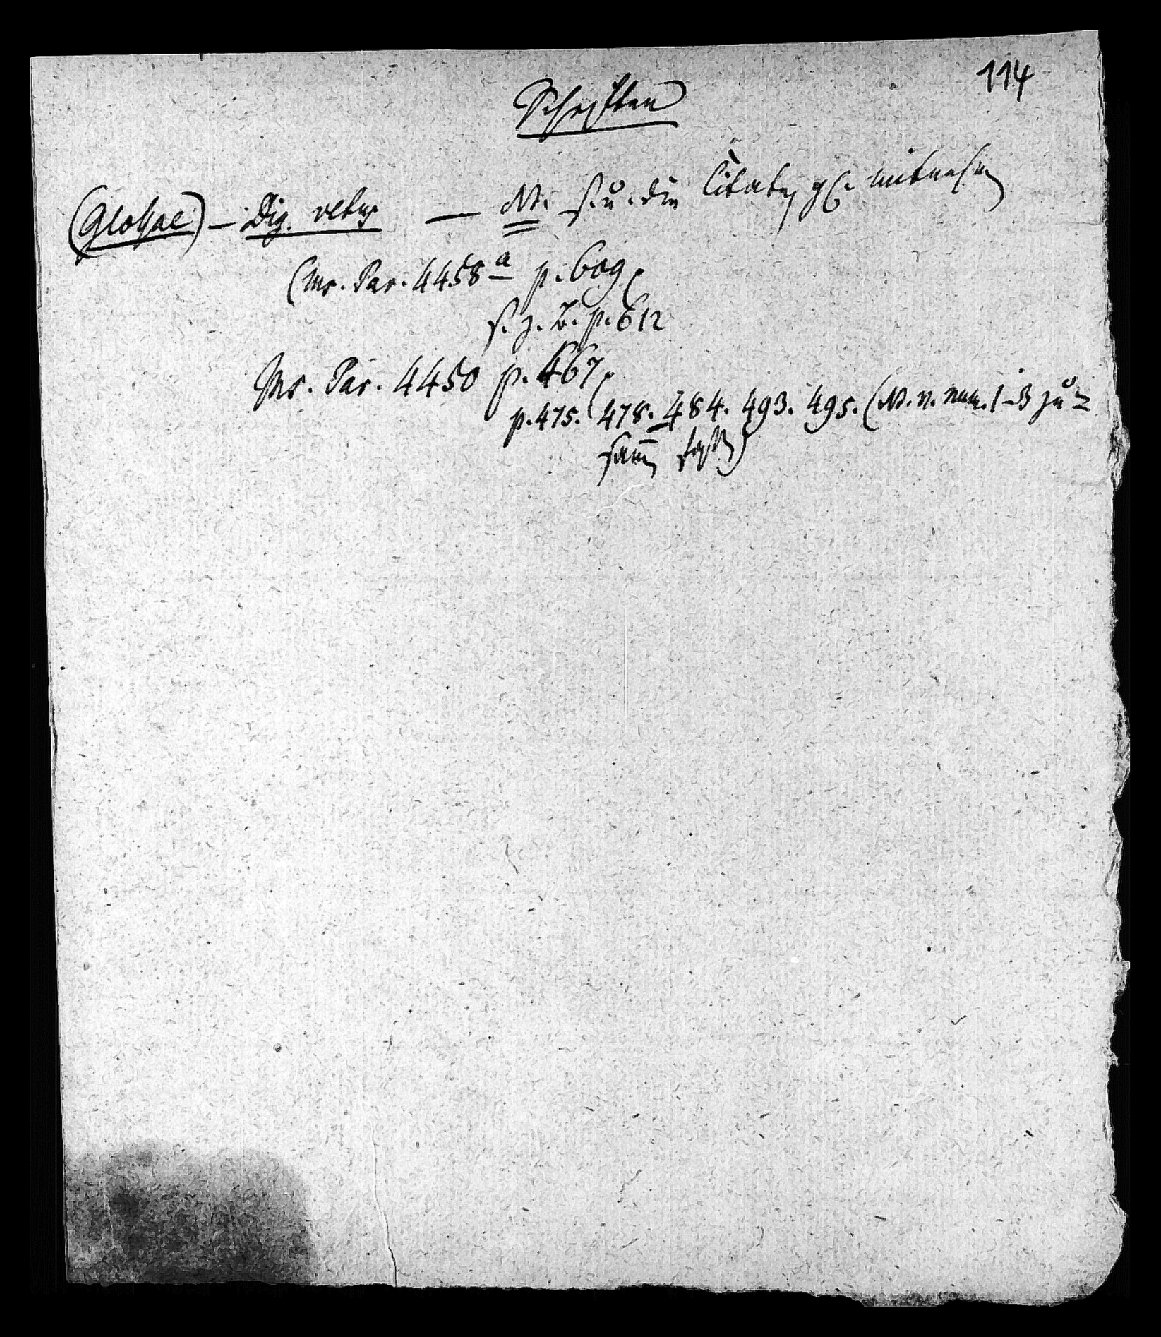 114
Schriften
(Glossae) — Dig. vetus — NB. s. u. die Citate
(Ms. Par. 4458 a p. 609.
s. z. B. p. 612
Ms. Par. 4450 p. 467.
p. 475. 478. 484. 493. 495. (NB. v. num. 1-3 zu